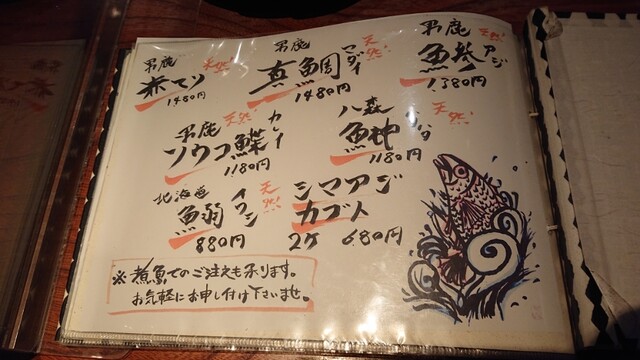 男鹿 天然
赤マソ
1480円
男鹿 天然
真鯛 マダイ
1480円
男鹿 天然
鯵 アジ
1380円
男鹿 天然
ソウコ鰈 カレイ
1180円
八森 天然
鰰
1180円
北海道 天然
鰯 イワシ
880円
シマアジ
カブト
2ケ 680円
※煮魚でのご注文も承ります。
お気軽にお申し付け下さいませ。